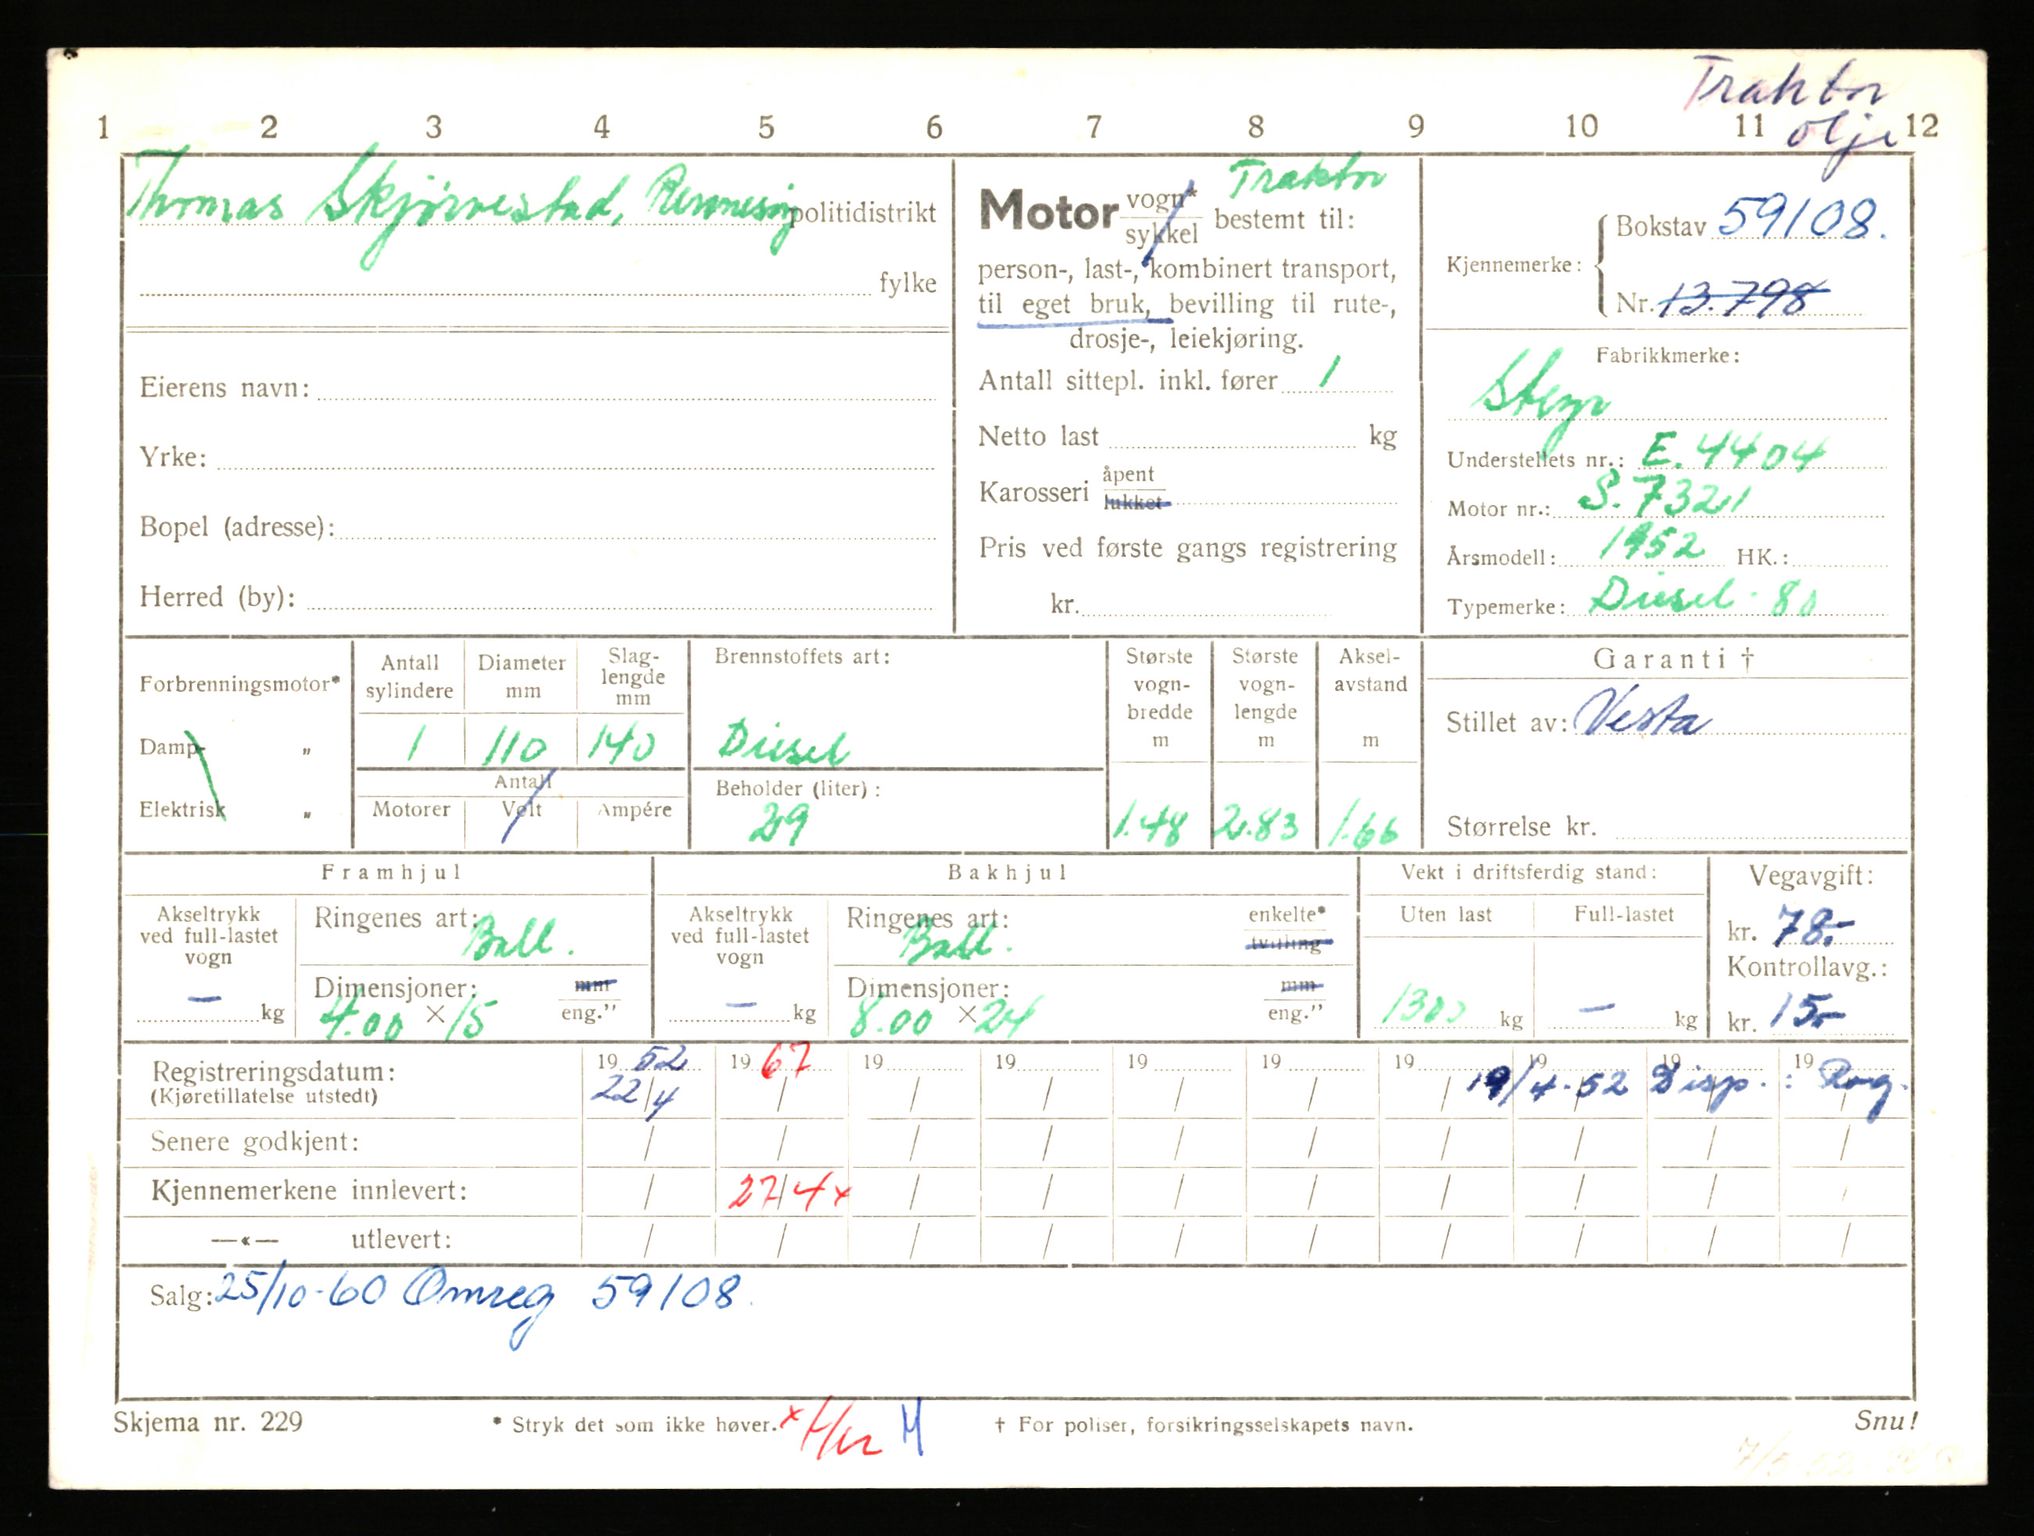 Traktor
olje
1 2 3 4 5 6 7 8 9 10 11 12
Thomas Skjørvestad, Rennesøy politidistrikt
fylke
Eierens navn:
Yrke:
Bopel (adresse):
Herred (by):
Traktor
Motor vogn* sykkel bestemt til:
person-, last-, kombinert transport,
til eget bruk, bevilling til rute-,
drosje-, leiekjøring.
Antall sittepl. inkl. fører 1
Netto last kg
Karosseri åpent lukket
Pris ved første gangs registrering
kr.
Kjennemerke: Bokstav 59108.
Nr. 13.798
Fabrikkmerke:
Steyr
Understellets nr.: E. 4404
Motor nr.: S. 7321
Årsmodell: 1952 HK.:
Typemerke: Diesel 80
Forbrenningsmotor*
Damp- "
Elektrisk "
Antall sylindere Diameter mm Slag-lengde mm
1 110 140
Antall
Motorer Volt Ampére
Brennstoffets art:
Diesel
Beholder (liter):
29
Største vogn-bredde m
1.48
Største vogn-lengde m
2.83
Aksel-avstand m
1.66
Garanti †
Stillet av: Vesta
Størrelse kr.
Framhjul
Akseltrykk ved full-lastet vogn
— kg
Ringenes art: Ball.
Dimensjoner: mm
4.00 × 15 eng."
Bakhjul
Akseltrykk ved full-lastet vogn
— kg
Ringenes art: Ball. enkelte* tvilling
Dimensjoner: mm
8.00 × 24 eng."
Vekt i driftsferdig stand:
Uten last Full-lastet
1300 kg — kg
Vegavgift:
kr. 78.-
Kontrollavg.:
kr. 15.-
Registreringsdatum: 19 52 19 67 19 19 19 19 19 19 19 19
(Kjøretillatelse utstedt) 22/4 19/4-52 Disp. : Rog.
Senere godkjent:
Kjennemerkene innlevert: 27/4 x
—«— utlevert:
Salg: 25/10-60 Omreg 59108.
Skjema nr. 229 * Stryk det som ikke høver. x † For poliser, forsikringsselskapets navn. Snu!